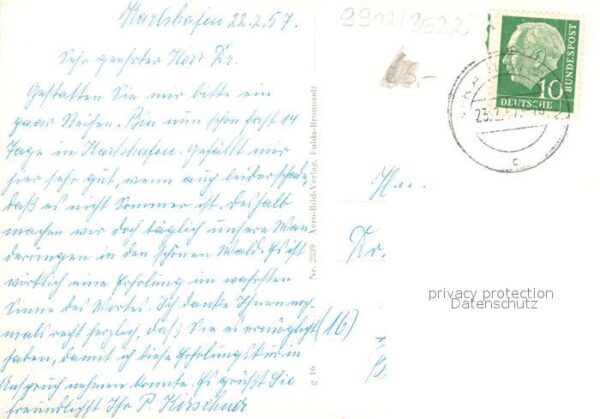 Karlshafen 22.2.57.
Sehr geehrter Herr Dr.
Gestatten Sie mir bitte ein
paar Reihen. Bin nun schon fast 14
Tage in Karlshafen. Gefällt mir
hier sehr gut, wenn auch leider schade,
daß es nicht Sommer ist. Deshalb
machen wir doch täglich unsere Wan
derungen in den schönen Wald. Es ist
wirklich eine Erholung im wahrsten
Sinne des Wortes. Ich danke Ihnen noch
mals recht herzlich, daß Sie es ermöglicht
haben, damit ich diese Erholungskur in
Anspruch nehmen konnte. Es grüßt Sie
freundlichst Ihr P. Kirschner
Nr. 2839 Aero-Bild-Verlag, Fulda-Bronnzell
g 16
9902/3522
-,
DEUTSCHE
BUNDESPOST
10
23.2.57
c
Hrn.
Dr.
(16)
privacy protection
Datenschutz